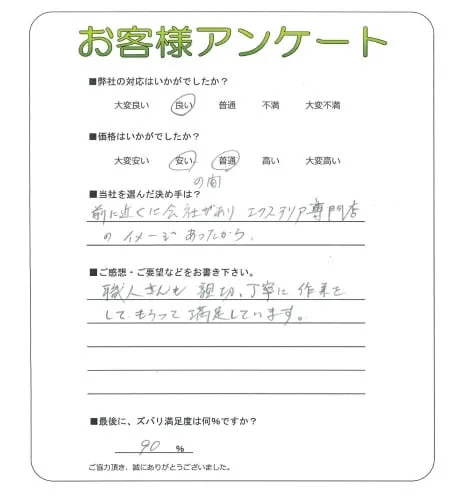 お客様アンケート
■弊社の対応はいかがでしたか？
大変良い 良い 普通 不満 大変不満
■価格はいかがでしたか？
大変安い 安い 普通 高い 大変高い
の間
■当社を選んだ決め手は？
前に近くに会社があり エクステリア専門店
の イメージ あったから。
■ご感想・ご要望などをお書き下さい。
職人さんも 親切、丁寧に 作業を
して もらって 満足しています。
■最後に、ズバリ満足度は何%ですか？
90 %
ご協力頂き、誠にありがとうございました。